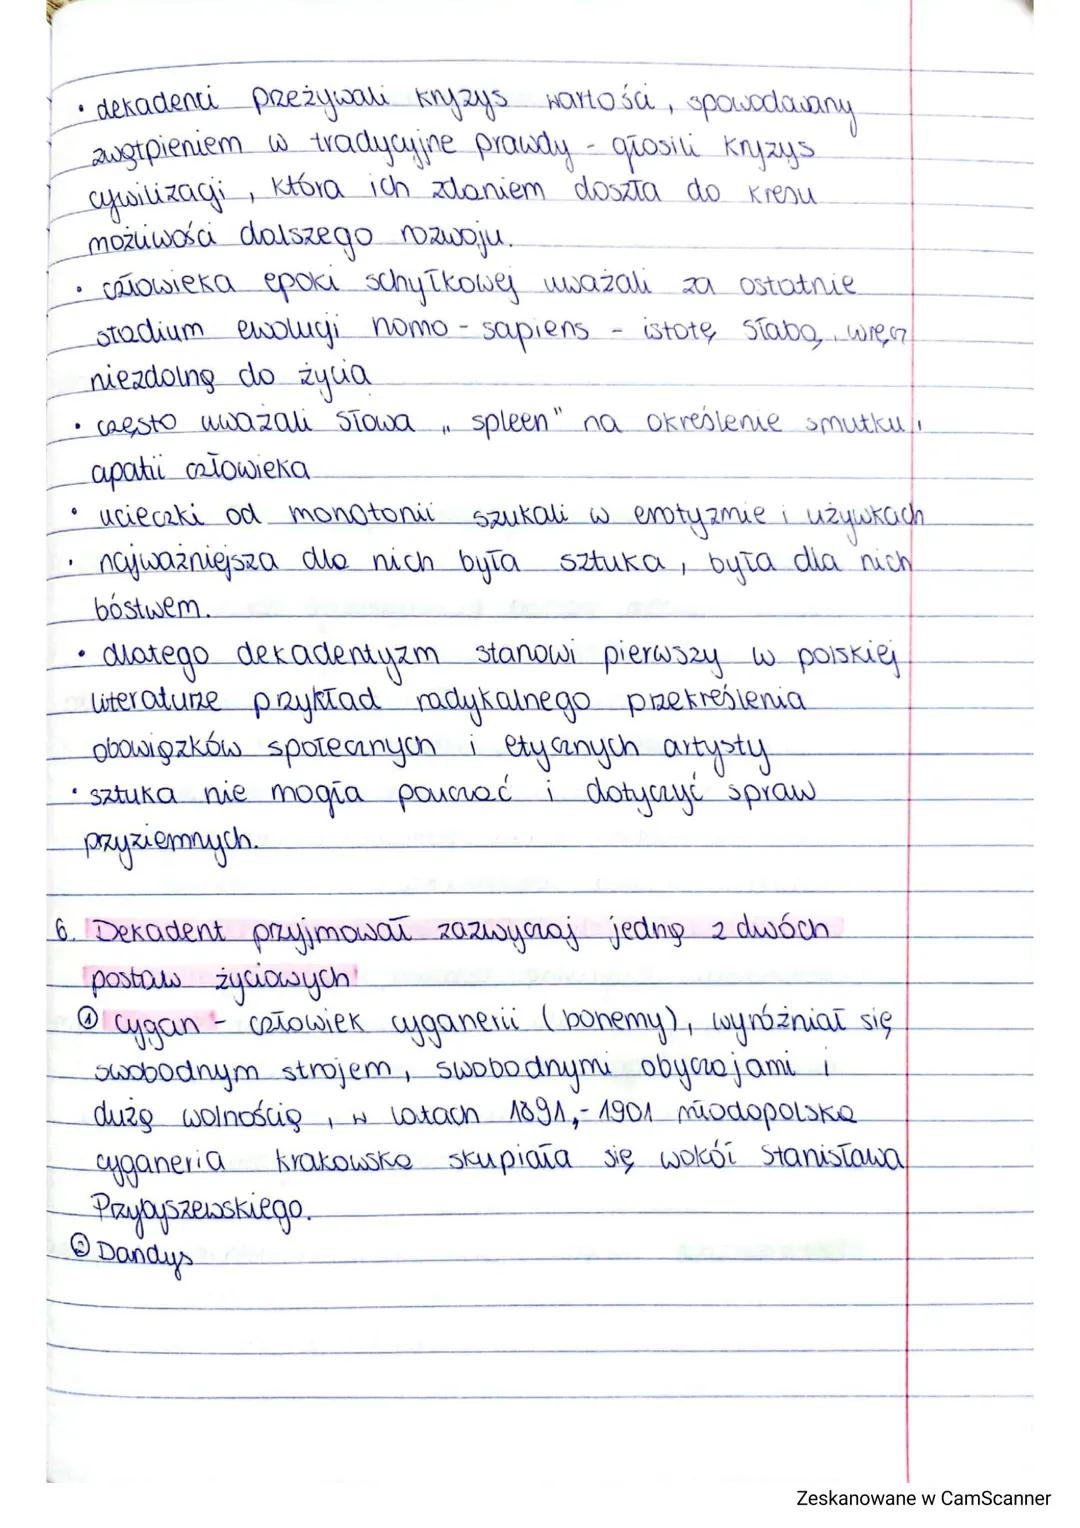 • dekadenci przeżywali kryzys wartości, spowodowany
zwątpieniem w tradycyjne prawdy - głosili kryzys
cywilizacji, która ich zdaniem doszła do kresu
możliwości dalszego rozwoju.
• człowieka epoki schyłkowej uważali za ostatnie
stadium ewolucji homo - sapiens - istotę słabą, wręcz
niezdolną do życia
• często uważali słowa „spleen" na określenie smutku i
apatii człowieka
• ucieczki od monotonii szukali w erotyzmie i używkach
• najważniejsza dla nich była sztuka, była dla nich
bóstwem.
• dlatego dekadentyzm stanowi pierwszy w polskiej
literaturze przykład radykalnego przekreślenia
obowiązków społecznych i etycznych artysty
• sztuka nie mogła pouczać i dotyczyć spraw
przyziemnych.
6. Dekadent przyjmował zazwyczaj jedną z dwóch
postaw życiowych
① cygan - człowiek cyganerii (bohemy), wyróżniał się
swobodnym strojem, swobodnymi obyczajami i
dużą wolnością, w latach 1891,- 1901 młodopolska
cyganeria krakowska skupiała się wokół Stanisława
Przybyszewskiego.
② Dandys
Zeskanowane w CamScanner